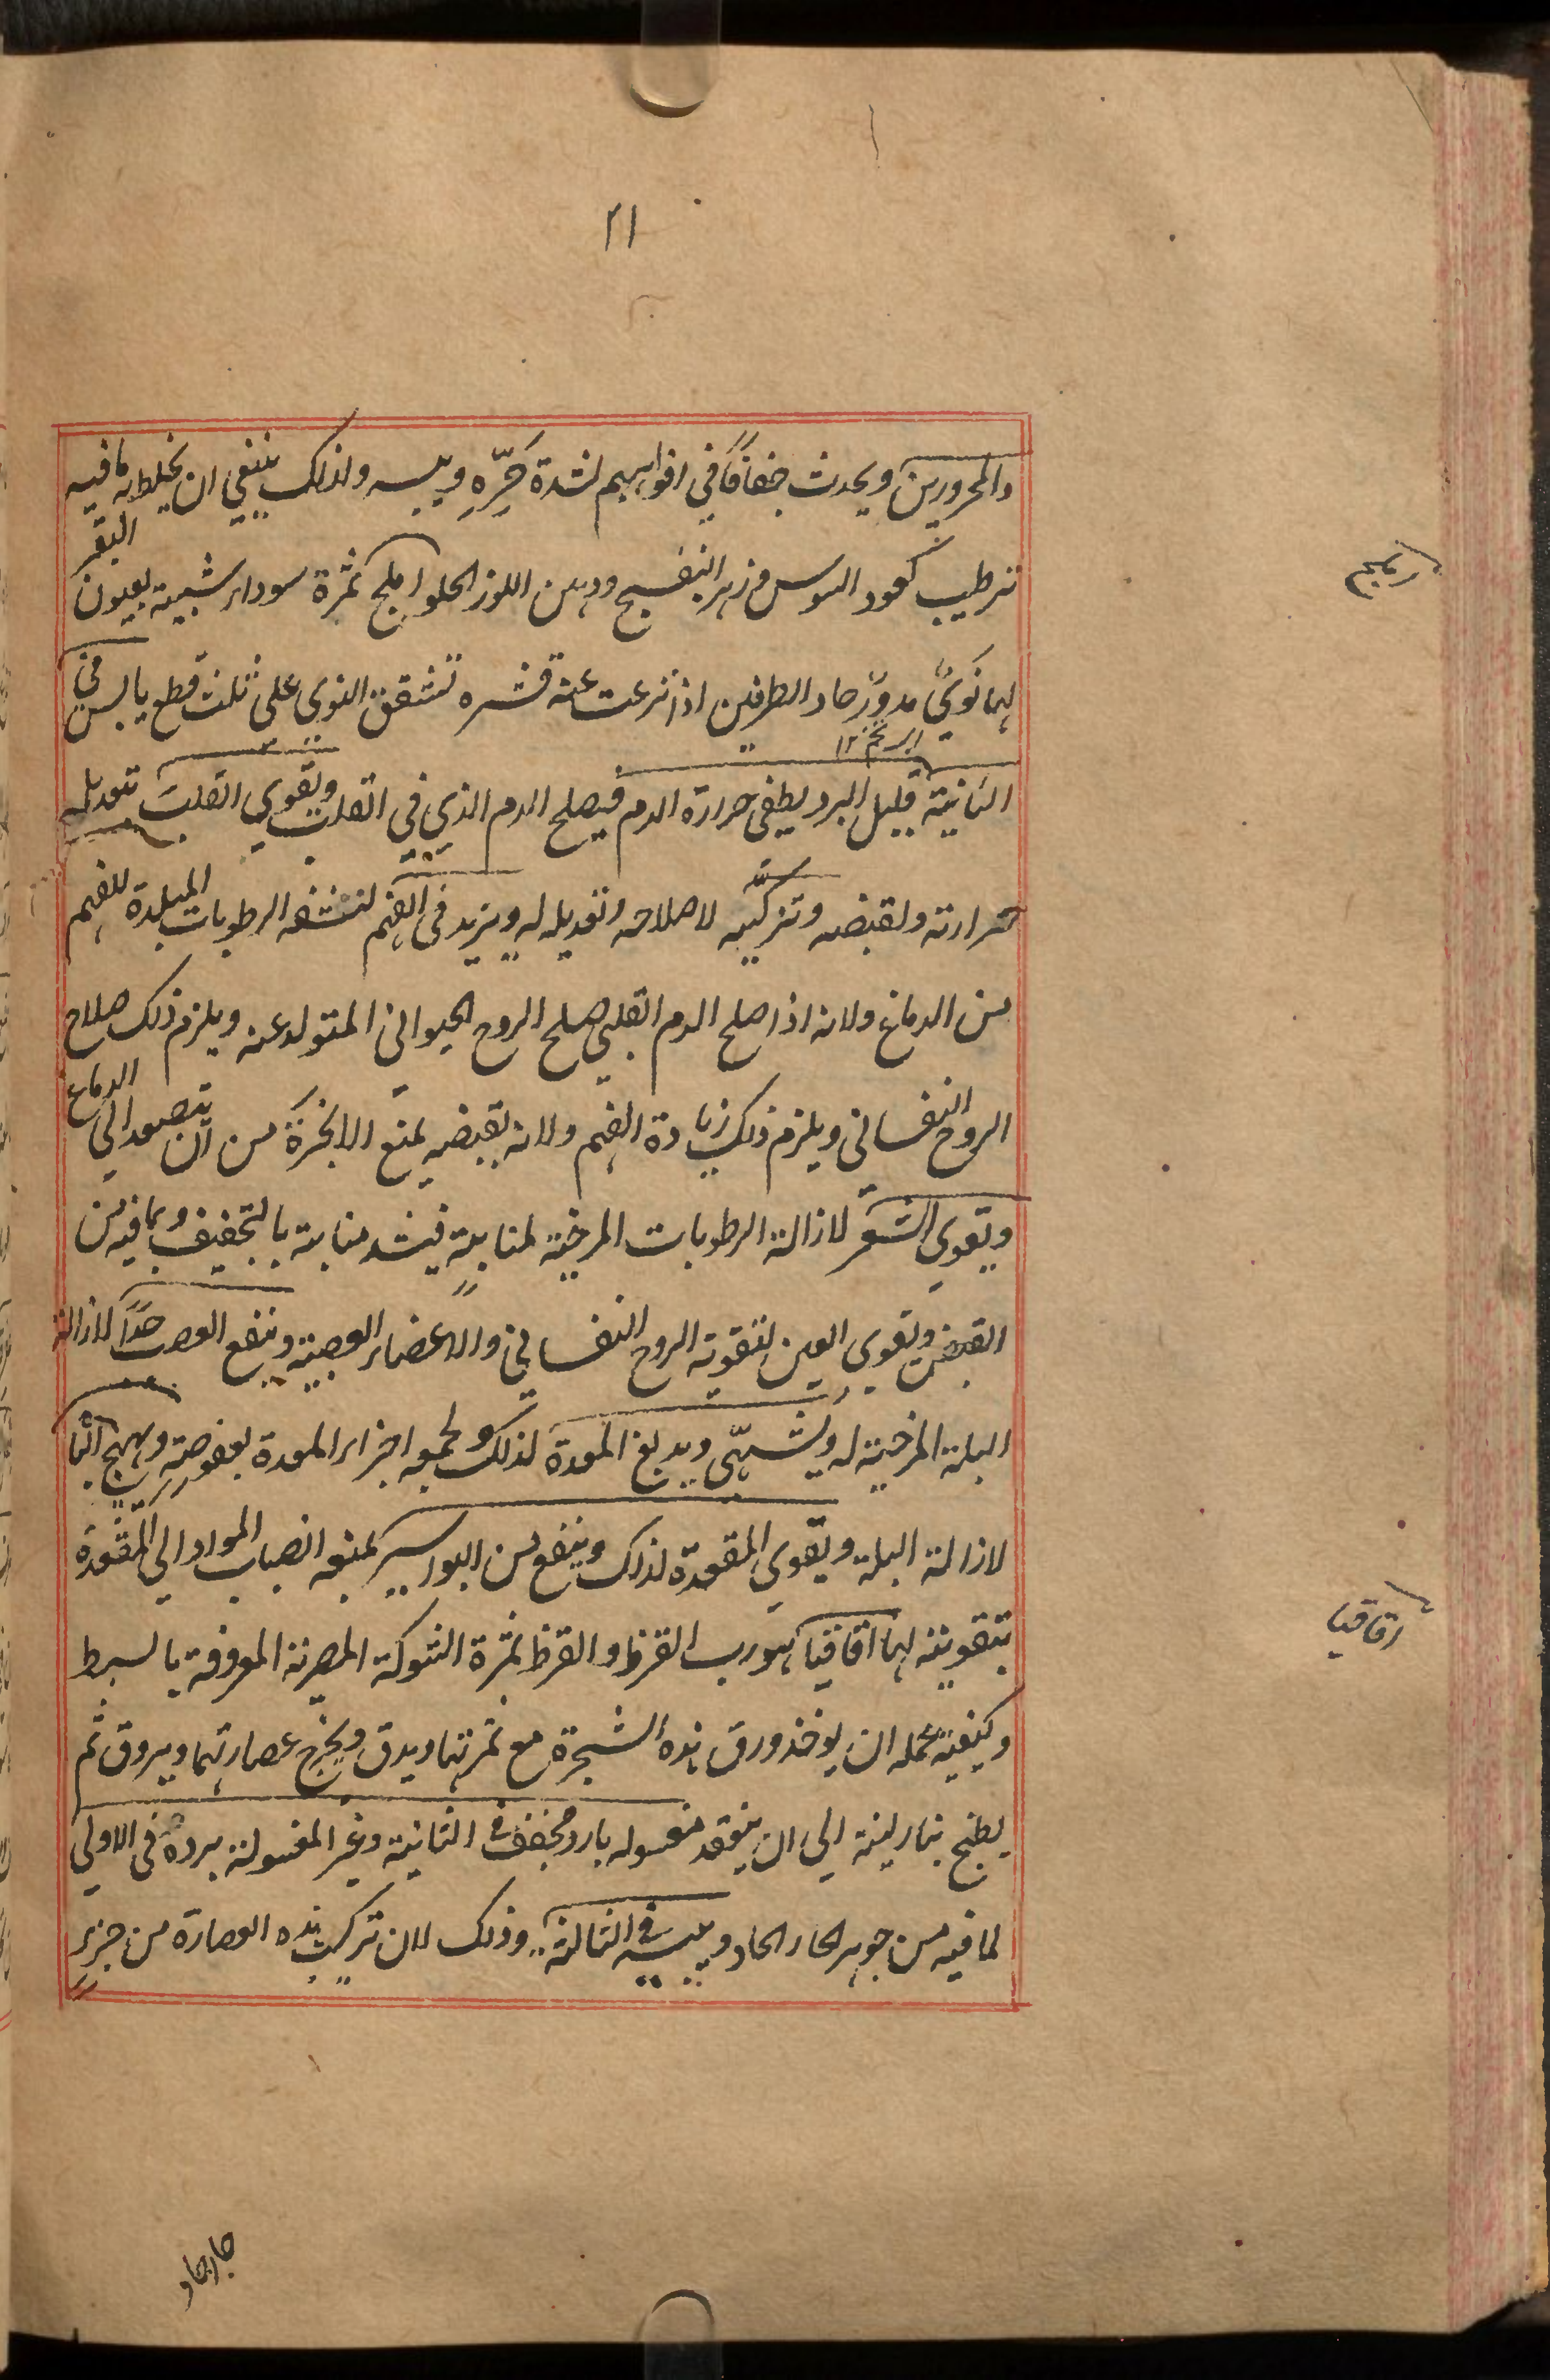 ٢١
والمحرورين ويحدث جفافًا في افواههم لشدة حَرِّهِ ويبسه ولذلك ينبغي ان يخلط به ما فيه
ترطيب كعود السوس وزهر البنفسج ودهن اللوز الحلو املج ثمرة سوداء شبيهة بعيون البقر
املج
لها نوىً مدوّر حاد الطرفين اذا نزعت عنه قشره تشقق النوى على ثلث قطع يابس في
الثانية قليل البرد يطفى حرارة الدم فيصلح الدم الذي في القلب ويقوي القلب بتعديله
حرارته ولقبضه وتزكيه لاصلاحه وتعديله له ويزيد في الفهم لنشفه الرطوبات المبلدة للفهم
من الدماغ ولانه اذا صلح الدم القلبي صلح الروح الحيواني المتولد عنه ويلزم ذلك صلاح
الروح النفساني ويلزم ذلك زيادة الفهم ولانه بقبضه يمنع الابخرة من ان تتصعد الى الدماغ
ويقوي الشعر لازالته الرطوبات المرخية لمنابته فيشد منابته بالتجفيف وبما فيه من
القبض ويقوي العين لتقوية الروح النفساني والاعضاء العصبية وينفع العصب جدًا لازالة
البلة المرخية له ويشهّى ويدبغ المعدة لذلك ولجمعه اجزاء المعدة بعفوصته ويهيج الباه
لازالة البلة ويقوي المقعدة لذلك وينفع من البواسير لمنعه انصباب المواد الى المقعدة
بتقويته لها اقاقيا هو رب القرظ والقرظ ثمرة الشوكة المصرية المعروفة بالسنط
اقاقيا
وكيفية عمله ان يوخذ ورق هذه الشجرة مع ثمرتها ويدق ويخرج عصارتهما ويروق ثم
يطبخ بنار لينة الى ان ينعقد مغسوله بارد مجفف في الثانية وغير المغسولة برده في الاولى
لما فيه من جوهر الحار الحاد ويبسه في الثالثة وذلك لان تركيب هذه العصارة من جزءٍ
حار حاد